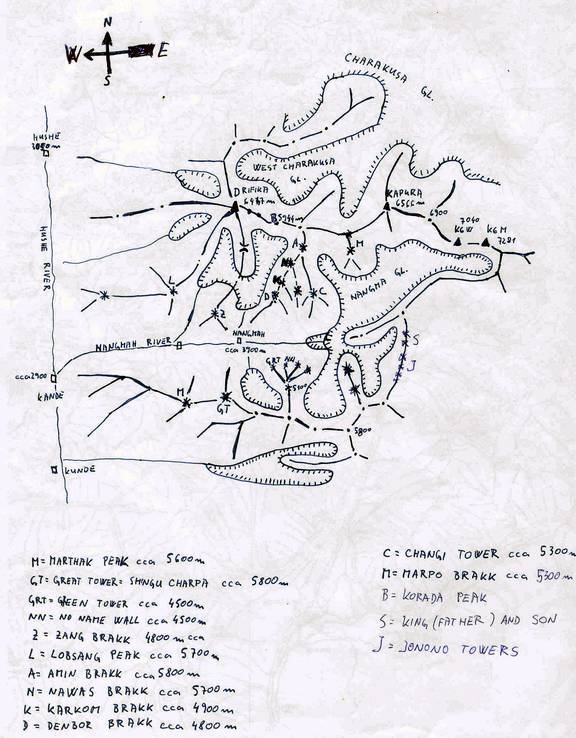 N
W E
S
CHARAKUSA
GL.
HUSHE
WEST CHARAKUSA
GL.
DRIFIKA
KAPURA
6566m
6900
7040
KGW KGM
7281
A
M
HUSHE RIVER
NANGMA GL.
L
D
C
Z
NANGMAH RIVER
NANGMAH
cca 3900m
S
cca2900
KANDE
GRT NN
J
M
GT
5300
5800
KUNDE
M= MARTHAK PEAK cca 5600m
GT= GREAT TOWER= SHINGU CHARPA cca 5800m
GRT= GREEN TOWER cca 4500m
NN= NO NAME WALL cca 4500m
Z = ZANG BRAKK 4800m cca
L = LOBSANG PEAK cca 5700m
A= AMIN BRAKK cca 5800m
N= NAWAS BRAKK cca 5700m
K= KARKOM BRAKK cca 4900m
D = DENBOR BRAKK cca 4800m
C = CHANGI TOWER cca 5300m
M= MARPO BRAKK cca 5300m
B= KORADA PEAK
S= KING (FATHER) AND SON
J = JONONO TOWERS